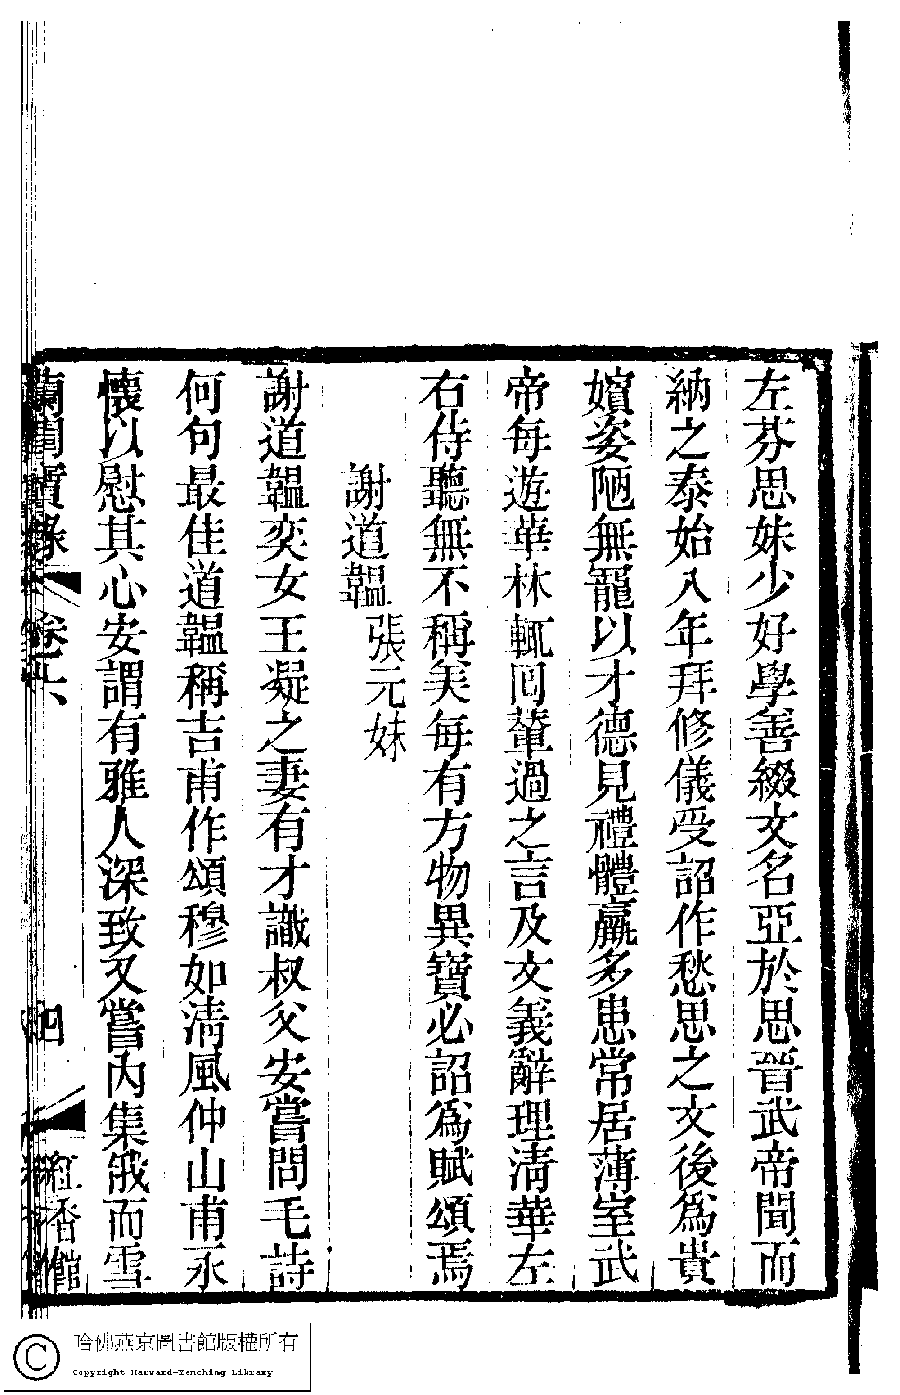 左芬思妹少好學善綴文名亞於思晉武帝聞而
納之泰始八年拜修儀受詔作愁思之文後爲貴
嬪姿陋無寵以才德見禮體羸多患常居薄室武
帝每遊華林輒囘輦過之言及文義辭理清華左
右侍聽無不稱美每有方物異寶必詔爲賦頌焉
謝道韞 張元妹
謝道韞奕女王凝之妻有才識叔父安嘗問毛詩
何句最佳道韞稱吉甫作頌穆如清風仲山甫永
懷以慰其心安謂有雅人深致又嘗內集俄而雪
蘭閨寶錄 卷六 四 紅香館
哈佛燕京圖書館版權所有
Copyright Harvard-Yenching Library